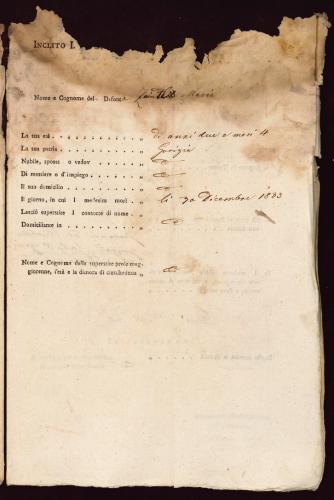 INCLITO I.
Nome e Cognome del Defonto Maria
La sua età di anni due e mesi 4
La sua patria Gorizia
Nubile, sposo o vedov
Di mestiere o d'impiego
Il suo domicilio
Il giorno, in cui l medesim morì li 30 Dicembre 1833
Lasciò superstite l consorte di nome
Domiciliante in
Nome e Cognome della superstite prole mag-
giorenne, l'età e la dimora di ciascheduna